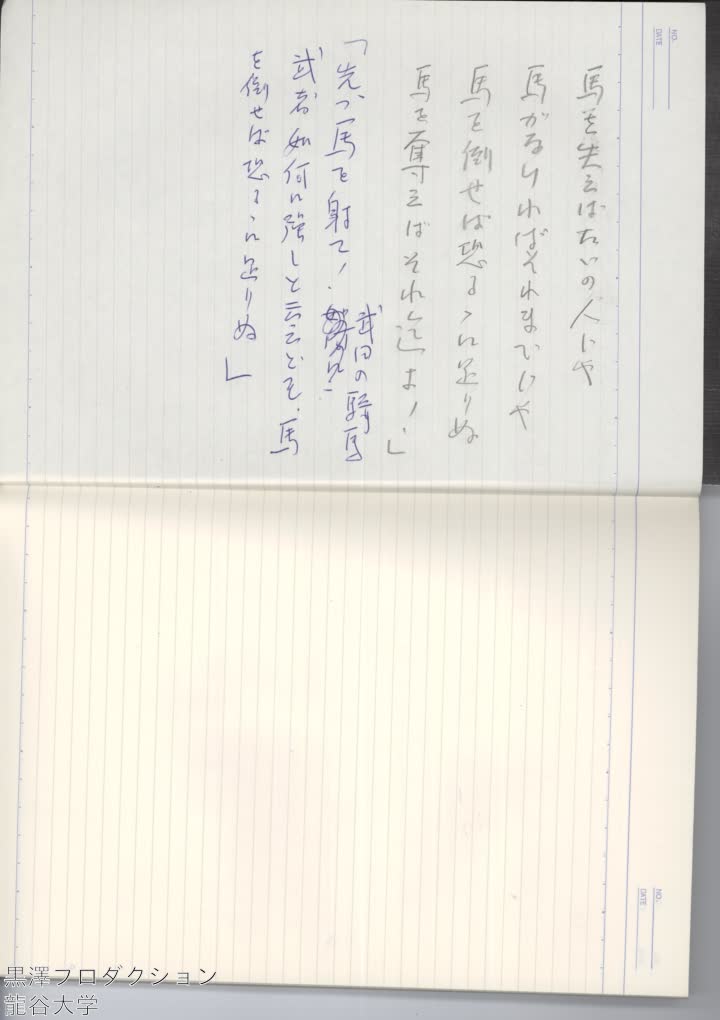 馬を失えばたゞの人じゃ
馬がなければそれまでじゃ
馬を倒せば恐るゝに足りぬ
馬を奪えばそれ迄よ!」
「先づ馬を射て!
武田の騎馬
武者如何に強しと云えども、馬
を倒せば恐るゝに足りぬ」
NO.
DATE
NO.
DATE
黒澤プロダクション
龍谷大学